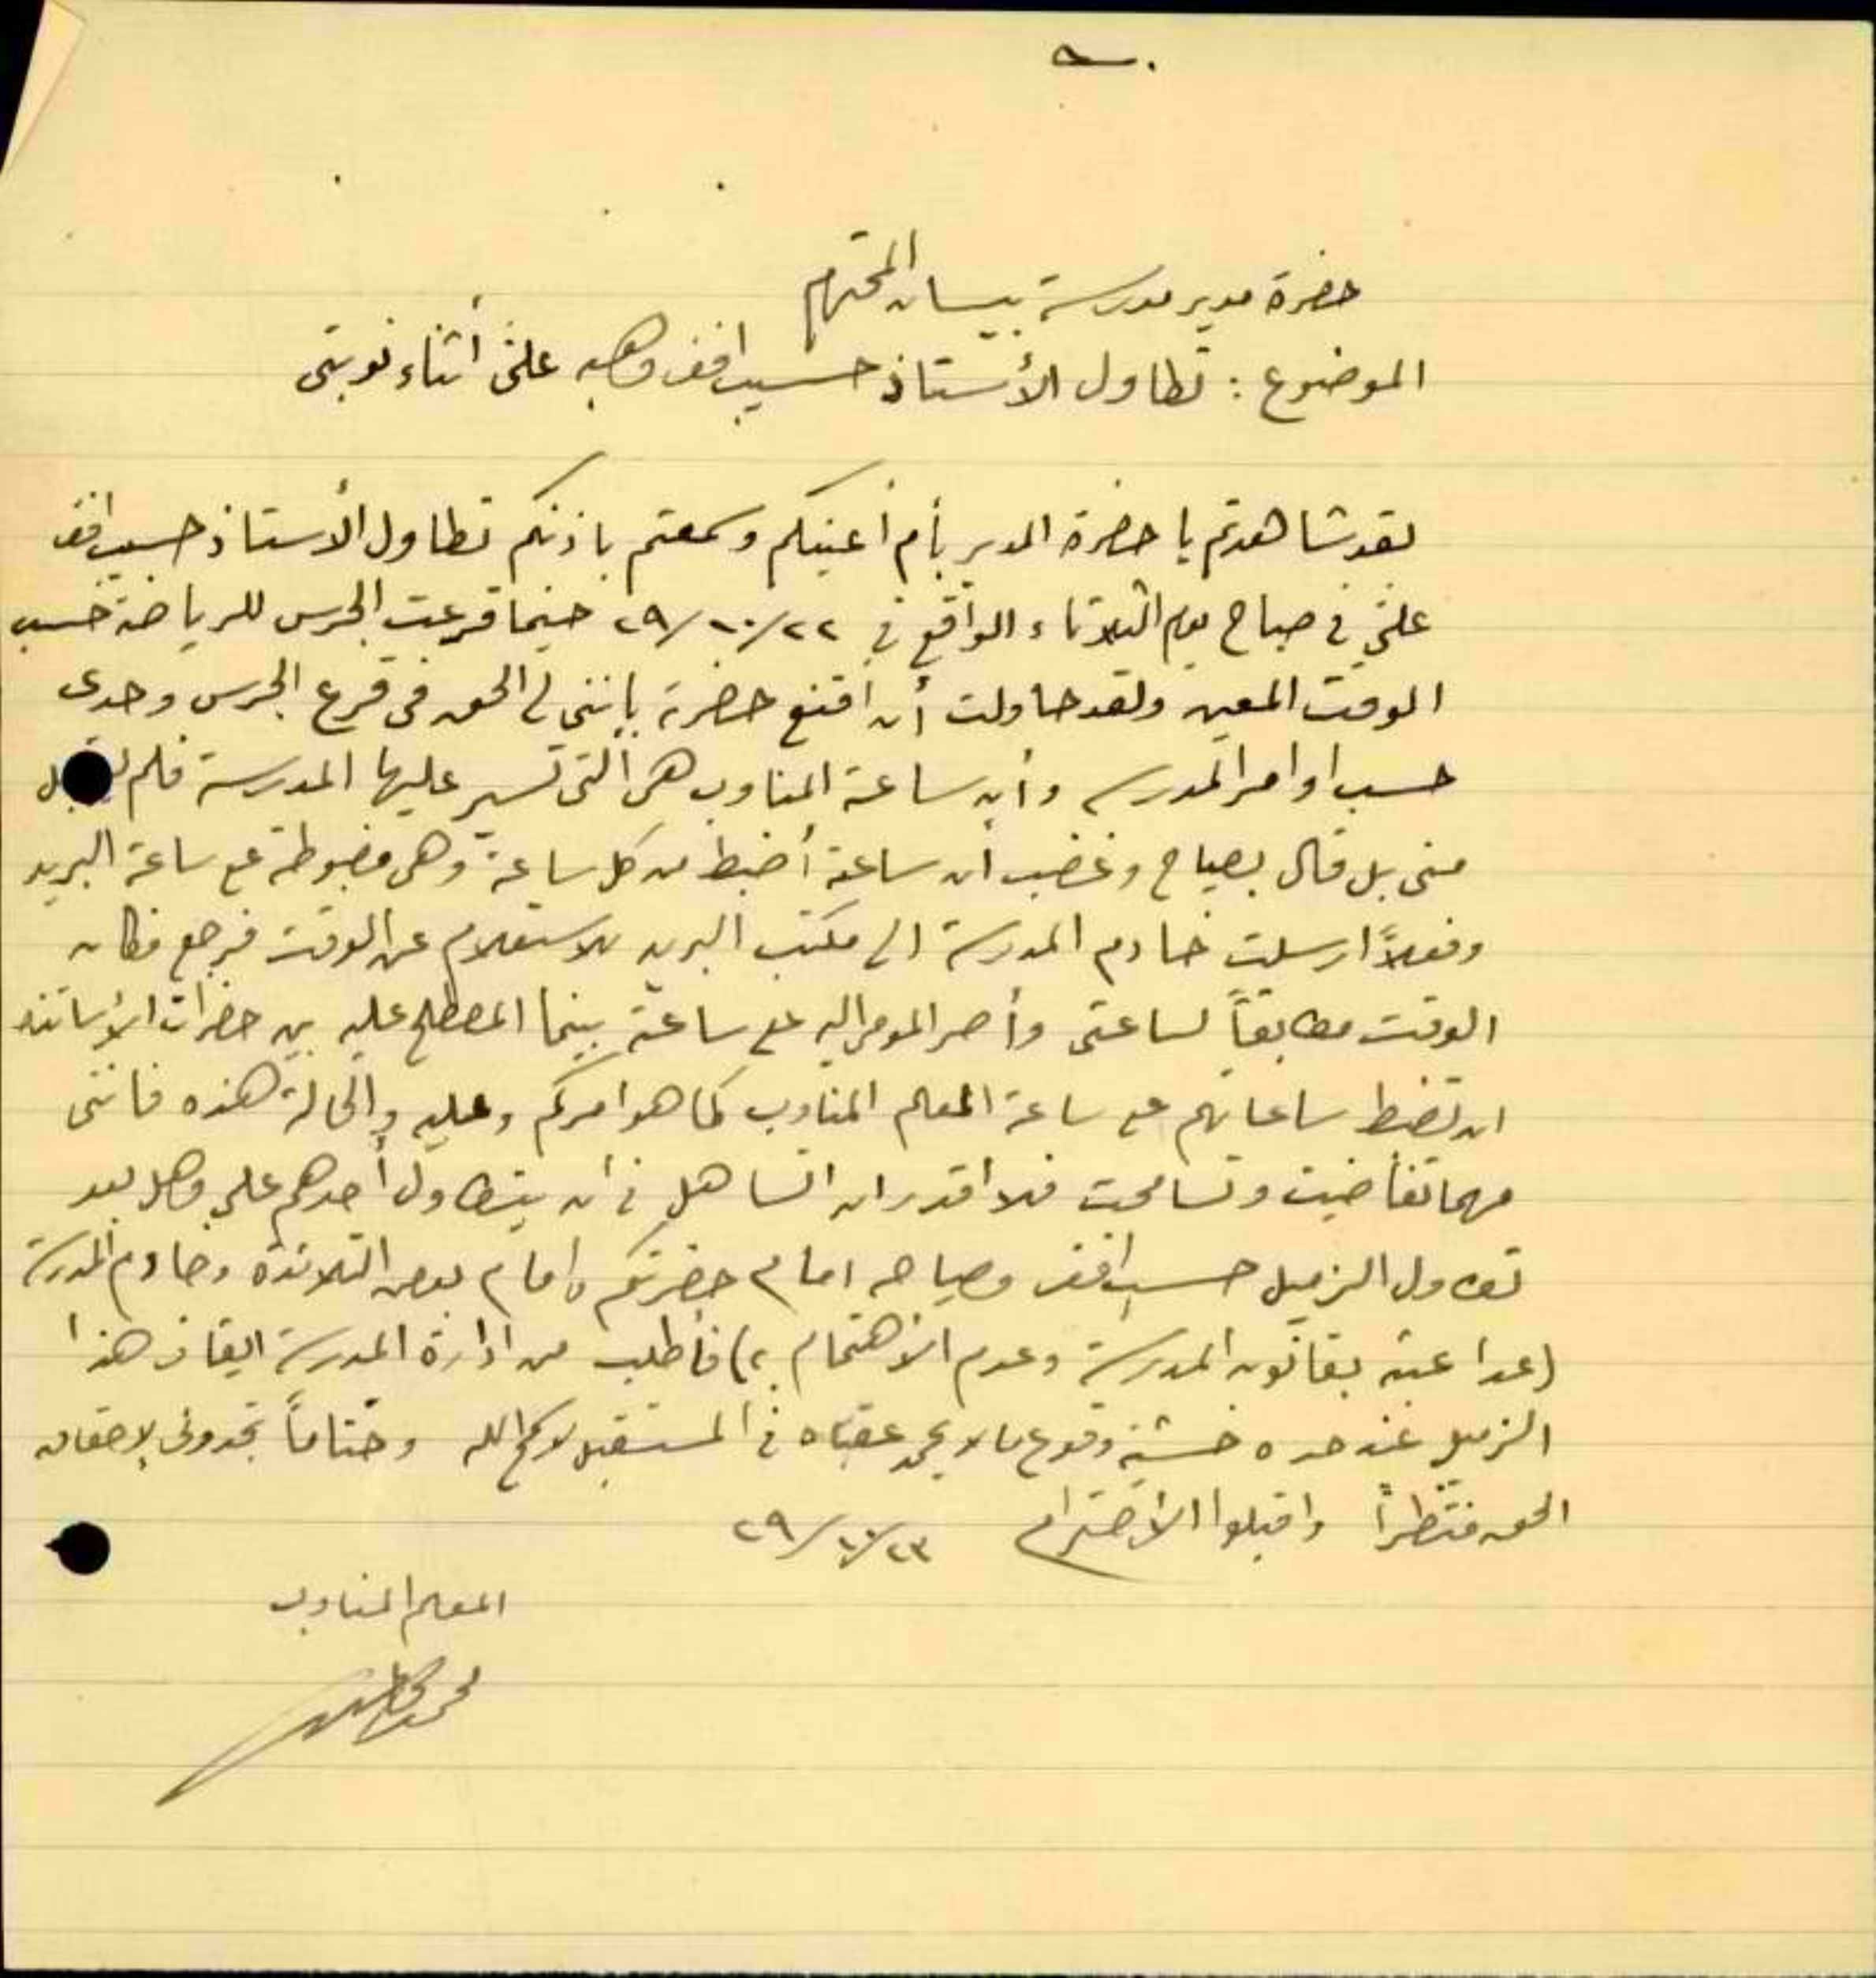 حضرة مدير مدرسة بيسان المحترم
الموضوع : تطاول الأستاذ حسيب افندي وهبه علىّ أثناء نوبتى
لقد شاهدتم يا حضرة المدير بأم أعينكم وسمعتم باذنكم تطاول الأستاذ حسيب افندي
علىّ في صباح يوم الثلاثاء الواقع في ٢٢/١٠/٢٩ حينما قرعت الجرس للرياضة حسب
الوقت المعين ولقد حاولت أن اقنع حضرته بإننى لي الحق فى قرع الجرس وحدى
حسب اوامر المدرسه وأن ساعة المناوب هى التى تسير عليها المدرسة فلم يقبل
منى بل قال بصياح وغضب ان ساعته أضبط من كل ساعة وهى مضبوطة مع ساعة البريد
وفعلاً ارسلت خادم المدرسة الى مكتب البريد للاستعلام عن الوقت فرجع فكان
الوقت مطابقاً لساعتى وأصر المومى اليه على ساعته بينما المصطلح عليه بين حضرات الأساتذه
ان تضبط ساعاتهم على ساعة المعلم المناوب كما هو امركم وعليه والحالة هذه فاننى
مهما تغاضيت وتسامحت فلا أقدر ان اتساهل في ان يتطاول أحدهم علي وهل بعد
تطاول الزميل حسيب افندي وصياحه امام حضرتكم وامام بعض التلامذة وخادم المدرسة
(عدا عبثه بقانون المدرسة وعدم الاهتمام به) فأطلب من ادارة المدرسة ايقاف هذا
الزميل عند حده خشية وقوع ما لا يحمد عقباه في المستقبل لا سمح الله وختاماً تجدونى لإحقاق
الحق منتظراً واقبلوا الاحترام ٢٣/١٠/٢٩
المعلم المناوب
محمد